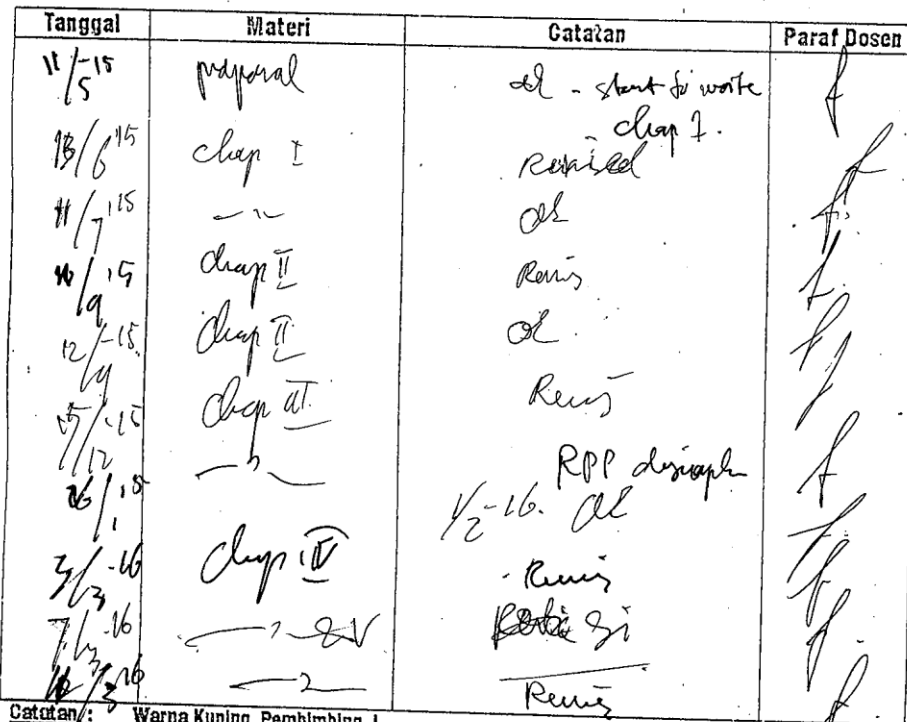 Tanggal Materi Catatan Paraf Dosen
11/5-15 proposal ok - start to write
chap 1.
13/6 15 chap I Revised
11/7 15 ok
16/9 15 chap II Revisi
12/9-15 Chap II ok
Chap III Revisi
RPP
1/2-16. ok
3/3-16 Chap IV - Revisi
7/3-16 & V Revisi
/3 16 Revisi
Catatan : Warna Kuning Pembimbing I